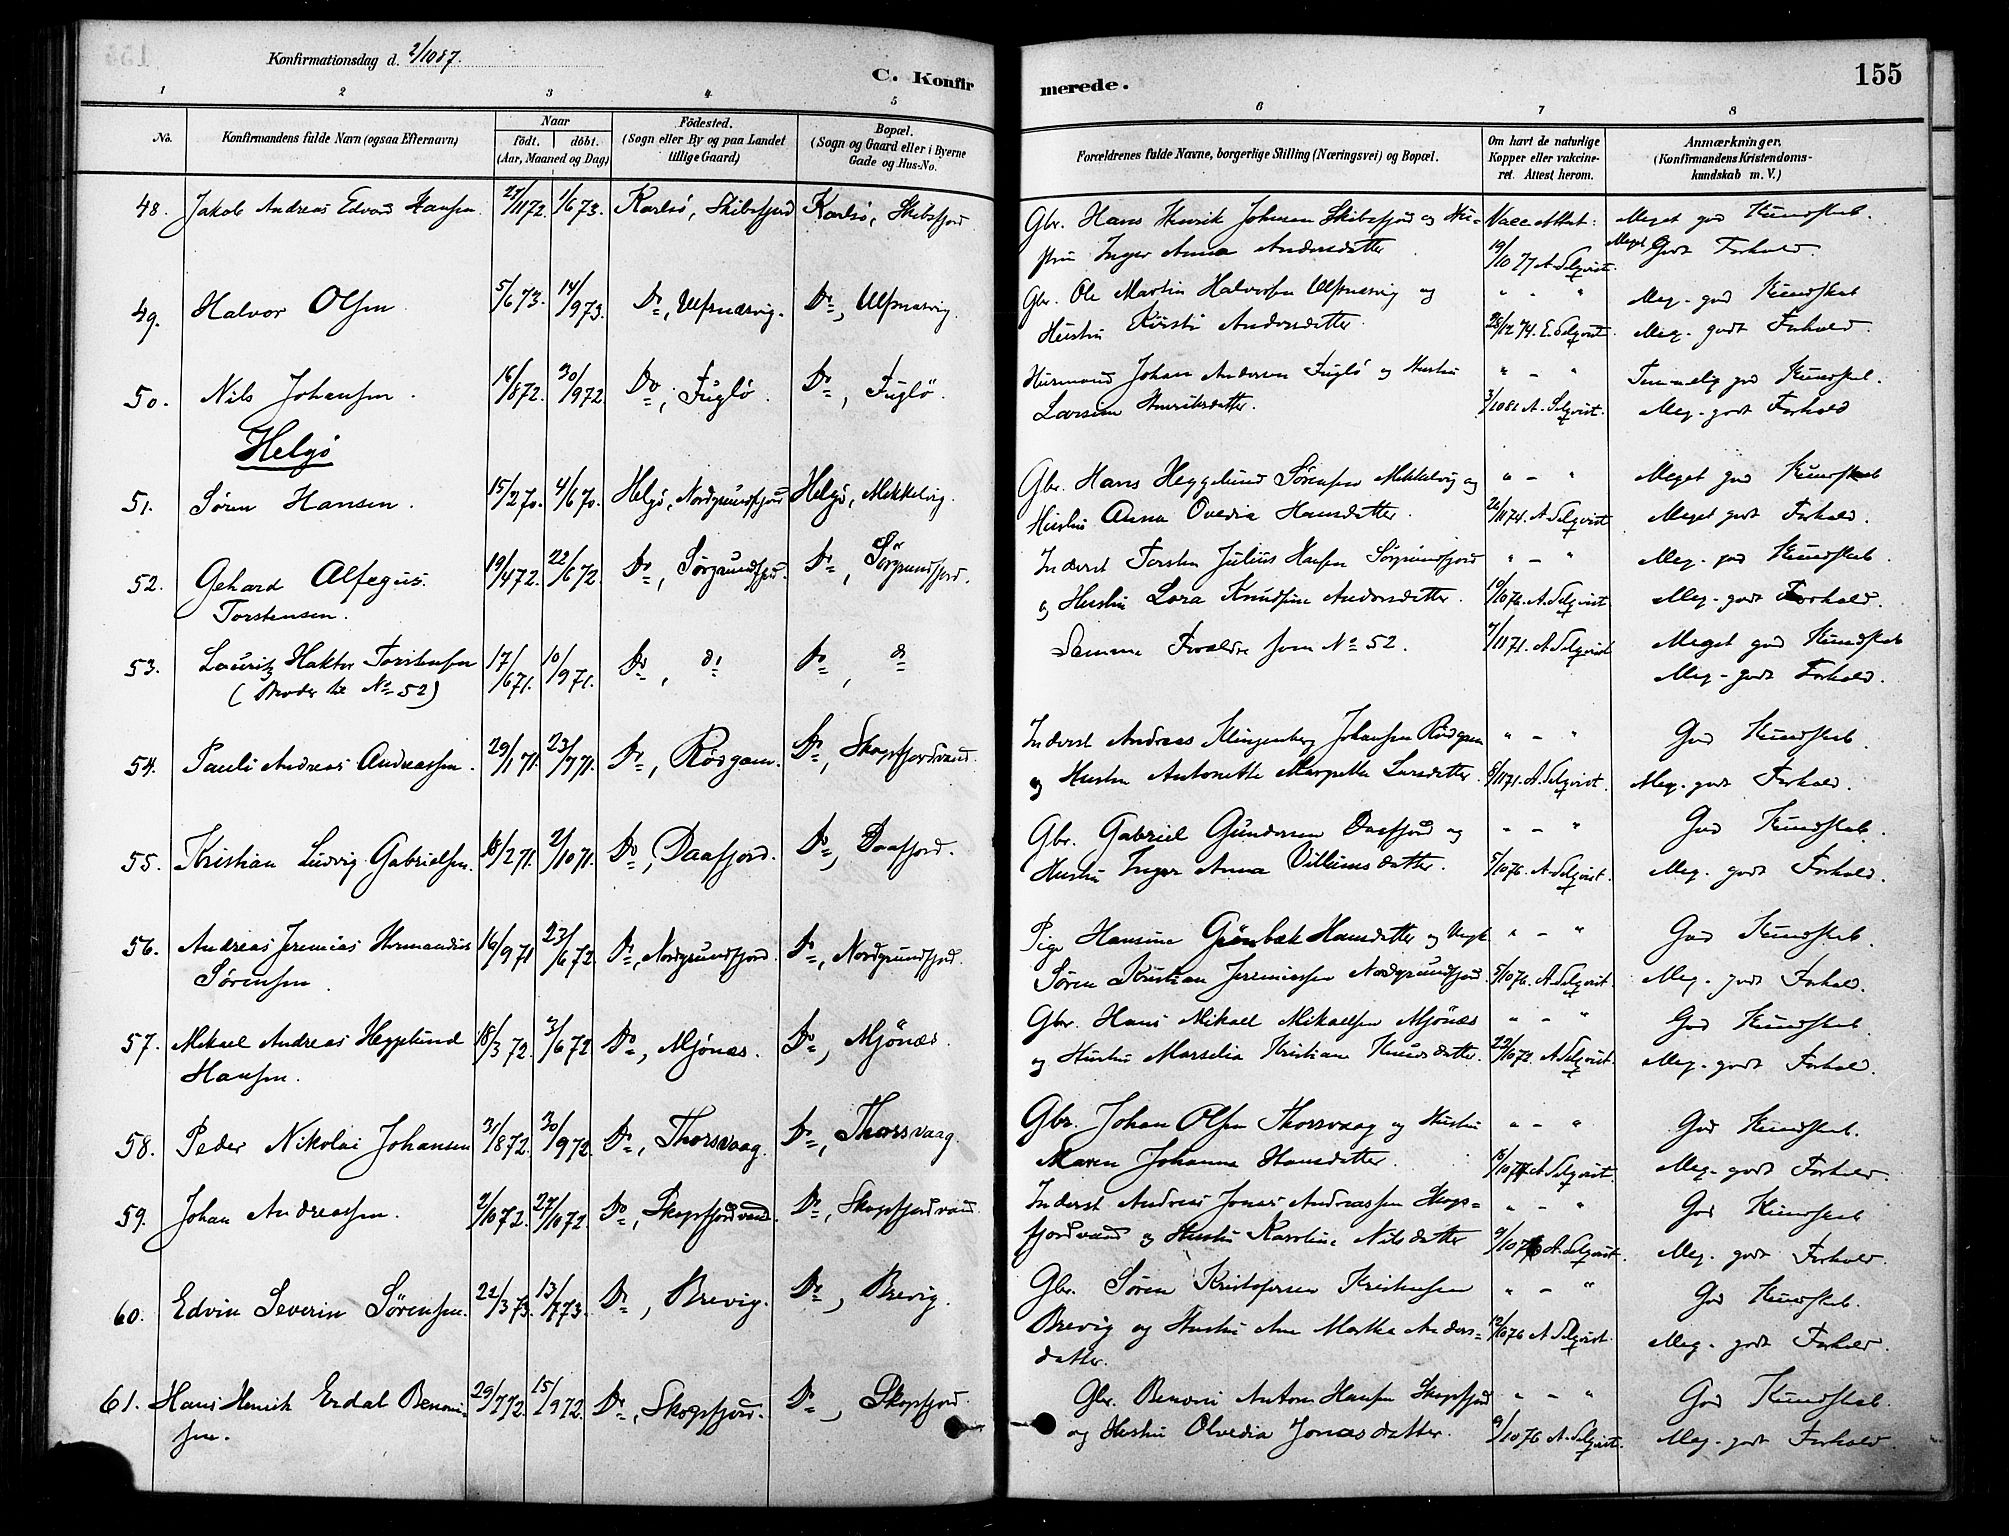 Konfirmationsdag d. 2/10 87.
C. Konfirmerede.
155
1 2 3 4 5 6 7 8
No. | Konfirmandens fulde Navn (ogsaa Efternavn) | Naar födt. | döbt. (Aar, Maaned og Dag) | Födested. (Sogn eller By og paa Landet tillige Gaard) | Bopæl. (Sogn og Gaard eller i Byerne Gade og Hus-No. | Forældrenes fulde Navne, borgerlige Stilling (Næringsvei) og Bopæl. | Om havt de naturlige Kopper eller vakcineret. Attest herom. | Anmærkninger. (Konfirmandens Kristendomskundskab m. V.)
48. Jakob Andreas Edvard Hansen. 27/11 72. 1/6 73. Karlsö, Skibsfjord Karlsö, Skibsfjord Gbr. Hans Henrik Johnsen Skibsfjord og Hu- Vacc. Attest: Meget god Kundskab.
stru Inger Anna Andersdatter 19/10 77 A. Selqvist. Meget Godt Forhold.
49. Halvor Olsen 5/6 73. 14/9 73. Do, Ulfsnæsvig. Do, Ulfsnæsvig. Gbr. Ole Martin Halvorsen Ulfsnæsvig og " - " Meg. god Kundskab
Hustru Kirsti Andersdatter. 28/12 74. E. Selqvist. Meg. godt Forhold.
50. Nils Johansen. 16/8 72. 30/9 72 Do, Fuglö. Do, Fuglö. Husmand Johan Andersen Fuglö og Hustru " - " Temmelig god Kundskab.
Larsine Henriksdatter. 3/10 81 A. Selqvist. Meg. godt Forhold
Helgö
51. Sören Hansen. 15/2 70. 4/6 70. Helgö, Nordgrundfjord Helgö, Mikkelvig. Gbr. Hans Heggelund Sörensen Mikkelvig og " - " Meget god Kundskab
Hustru Anna Ovedia Hansdatter. 26/11 74. A. Selqvist Meget godt Forhold.
52. Gehard Alfegius 19/4 72. 22/6 72. Do, Sörgrundfjord. Do, Sörgrundfjord. Inderst Torsten Julius Hansen Sörgrundfjord " - " Meg. god Kundskab.
Torstensen. og Hustru Lora Knudsine Andersdatter. 10/10 76. A. Selqvist Meg. godt Forhold.
53. Lauritz Hakter Torstensen 17/6 71. 10/9 71. Do, do Do, do Samme Forældre som No 52. 7/11 71. A. Selqvist Meget god Kundskab
(Broder til No 52) Meg. godt Forhold.
54. Pauli Andreas Andreassen. 29/1 71. 23/7 71. Do, Rödgam. Do, Skogsfjordvand. Inderst Andreas Klingenberg Johansen Rödgam " - " God Kundskab.
og Hustru Antonette Margrethe Larsdatter. 8/11 71. A. Selqvist. Meg. godt Forhold.
55. Kristian Ludvig Gabrielsen. 18/2 71. 2/10 71. Do, Daafjord. Do, Daafjord. Gbr. Gabriel Gundersen Daafjord og " - " God Kundskab.
Hustru Inger Anna Villumsdatter. 5/10 76. A. Selqvist. Meg. godt Forhold.
56. Andreas Jeremias Hermandus 16/9 71 23/6 72. Do, Nordgrundfjord. Do, Nordgrundfjord. Pige Hansine Grönbek Hansdatter og Ungk. " - " God Kundskab.
Sörensen. Sören Kristian Jeremiassen Nordgrundfjord. 5/10 76. A. Selqvist. Meg. godt Forhold.
57. Mikael Andreas Heggelund 18/3 72. 3/6 72 Do, Mjönæs. Do, Mjönæs. Gbr. Hans Mikael Mikaelsen Mjönæs " - " God Kundskab.
Hansen. og Hustru Marselia Kristiane Knudsdatter. 22/10 72. A. Selqvist. Meg. godt Forhold.
58. Peder Nikolai Johansen 31/8 72. 30/9 72. Do, Thorsvaag. Do, Thorsvaag. Gbr. Johan Olsen Thorsvaag og Hustru " - " God Kundskab.
Maren Johanna Hansdatter. 18/10 74 A. Selqvist. Meg. godt Forhold.
59. Johan Andreassen. 2/10 72. 27/10 72 Do, Skogsfjordvand. Do, Skogsfjordvand Inderst Andreas Jonas Andreassen Skogs- " - " God Kundskab
fjordvand og Hustru Karoline Nilsdatter 9/10 76 A. Selqvist. Meg. godt Forhold.
60. Edvin Severin Sörensen. 22/3 73. 13/7 73. Do, Brevig. Do, Brevig. Gbr. Sören Kristofersen Kristensen " - " God Kundskab.
Brevig og Hustru Ane Martha Anders- 12/10 76 A. Selqvist. Meg. godt Forhold.
datter.
61. Hans Henrik Erdal Benoni- 29/7 72. 15/9 72. Do, Skogsfjord. Do, Skogsfjord. Gbr. Benoni Anton Hansen Skogsfjord " - " God Kundskab.
sen. og Hustru Olvedia Jonasdatter. 9/10 76 A. Selqvist. Meg. godt Forhold.